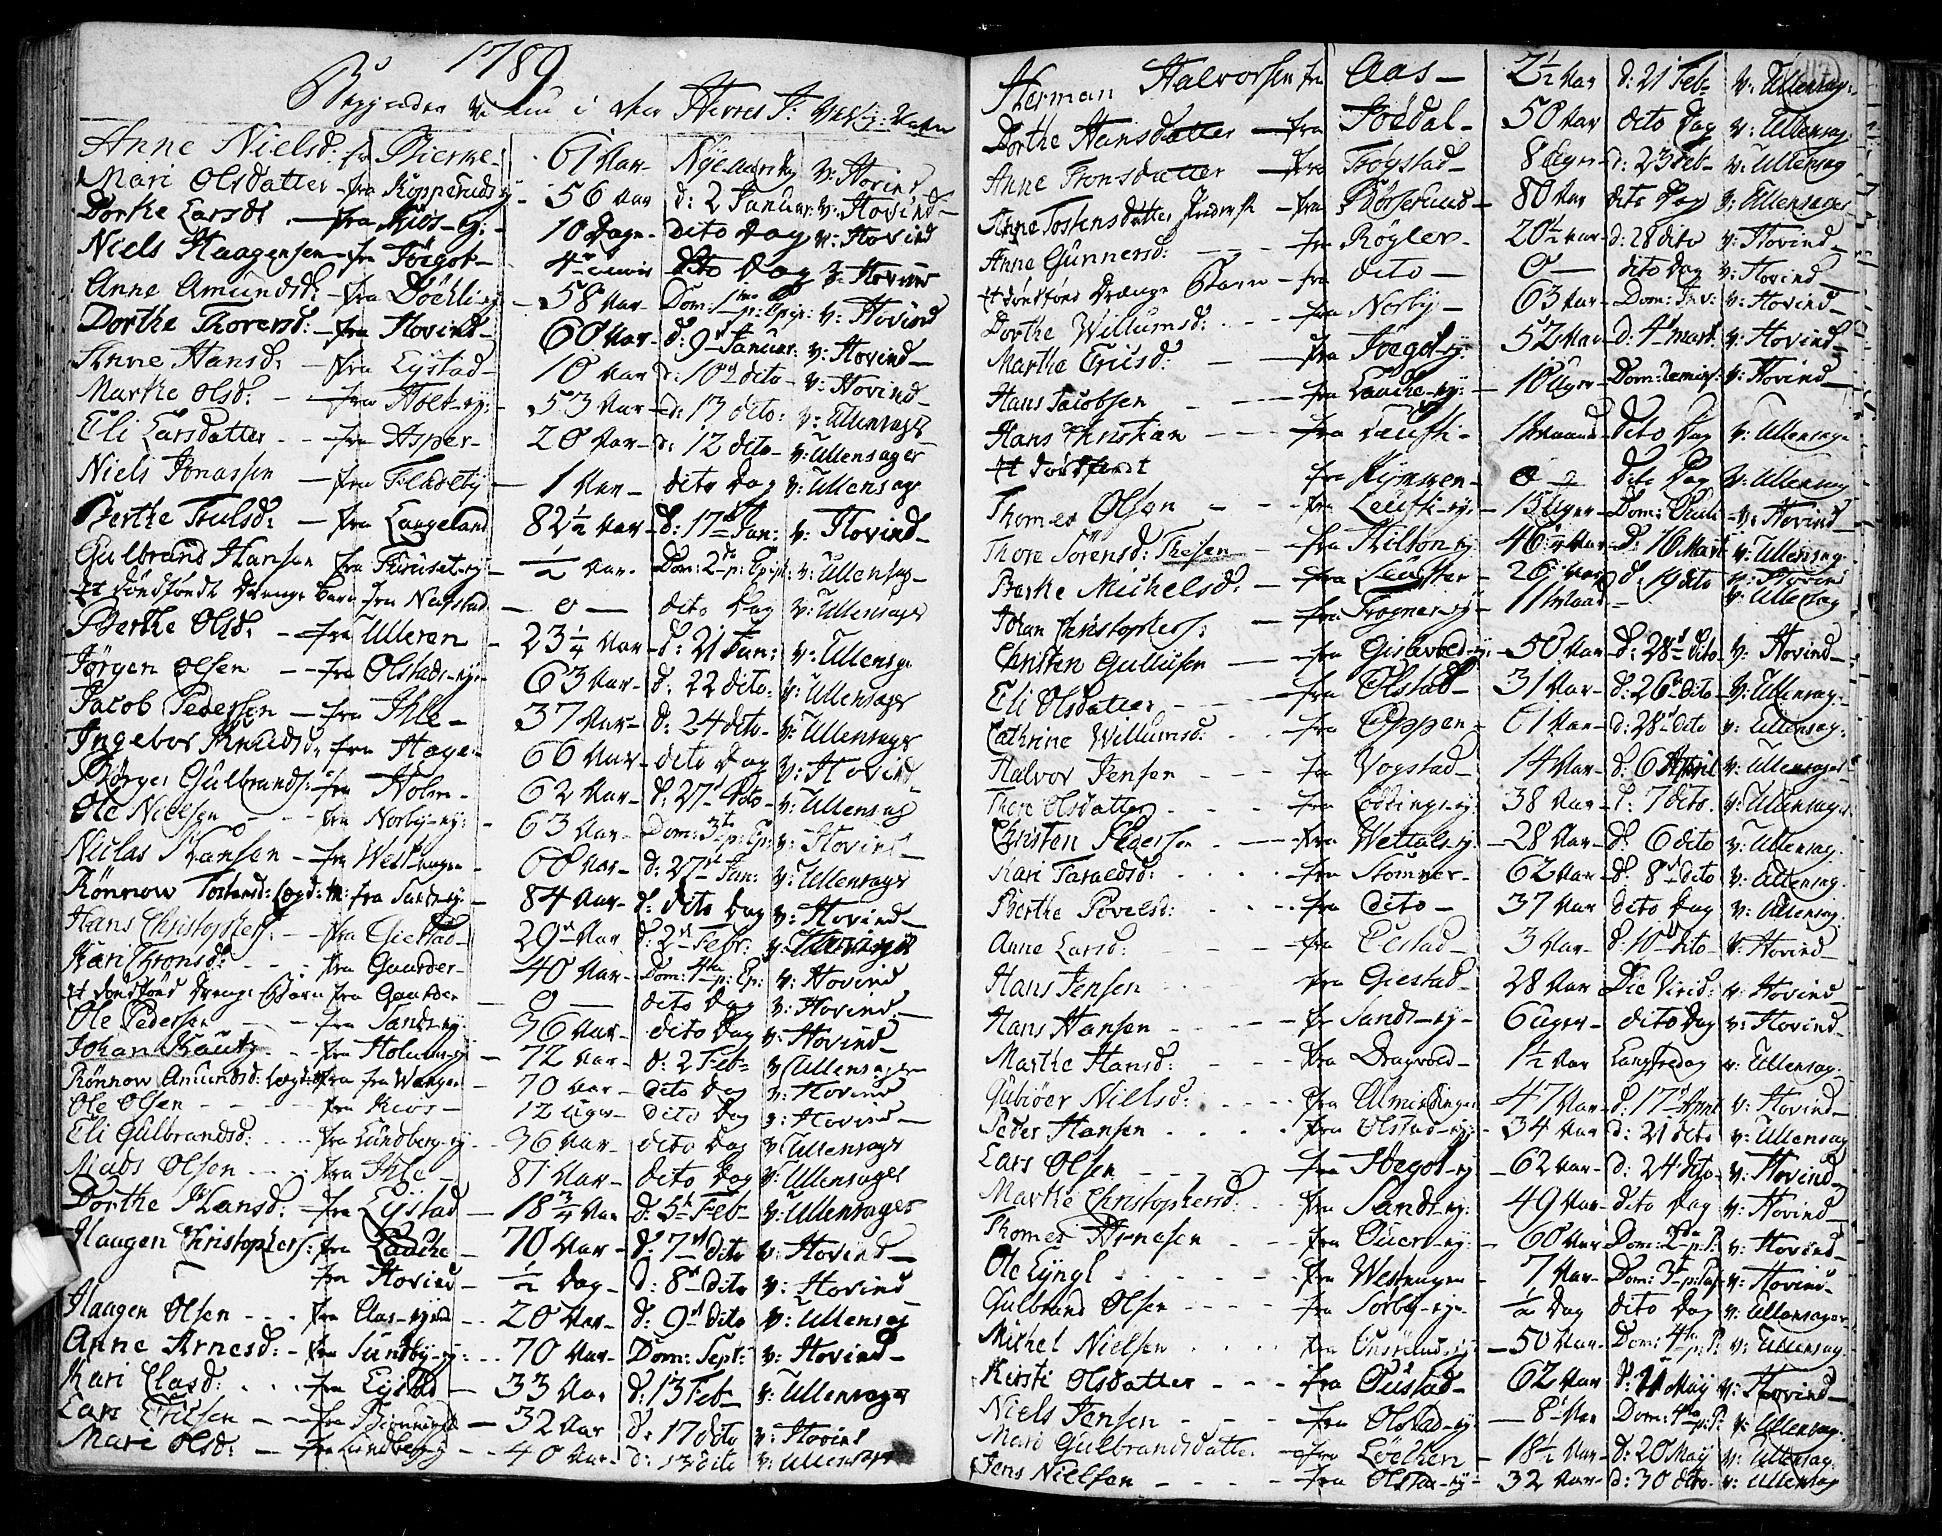 1789
Begyndes nu i den Herres J: Vels: Navn
Anne Nielsd: fra Bierke- 61 Aar- Nye Aarsdag v: Hovind
Mari Olsdatter- fra Kopperuds ey- 56 Aar d: 2 Januar: v: Hovind-
Dorthe Larsdt - fra Kiøs-E:- 10 Dage- dito Dag v: Hovind
Niels Haagensen- fra Jøgot- 4 dito Dag v: Hovind
Anne Amundsd: - fra Døhli-ey- 58 Aar- Dom: 1 p: Epip: v: Hovind
Dorthe Thorersd: - fra Hovind- 60 Aar- d: 9 Januar: v: Hovind-
Anne Hansd: - fra Eystad- 10 Aar d: 10 dito- v: Hovind-
Marthe Olsd: - fra Holt-ey: 53 Aar- d: 13 dito: v: Ullensager
Eli Larsdatter - - fra Asper- 20 Aar- d: 12 dito- v: Ullensager
Niels Jonassen - fra Fladeby- 1 Aar- dito Dag v: Ullensager
Berthe Trulsd: - fra Laageland 82½ Aar- d: 17 Jan: v: Hovind-
Gulbrand Hansen fra Kruset-ey- ½ Aar- Dom: 2 p: Epip: v: Ullensag-
Et dødfødt Drenge Barn fra Nafstad - 0 - dito Dag v: Ullensager
Berthe Olsd: - fra Ulleren- 23¼ Aar- d: 21 Jan: v: Ullensager
Jørgen Olsen - fra Olstads-ey- 63 Aar- d: 22 dito: v: Ullensager
Jacob Pedersen - fra Ihle- 37 Aar- d: 24 dito- v: Ullensager
Ingebor Knudsd: fra Hage- 60 Aar- dito Dag v: Hovind-
Børger Gulbrands: fra Holm- 62 Aar- d: 27 dito- v: Ullensag
Ole Nielsen - - fra Norby-ey: 63 Aar- Dom: 3 p: Ep: v: Hovind-
Niclas Hansen - fra Westengen- 60 Aar- d: 27 Jan: v: Ullensager
Rønnow Tostensd: Legd: m: fra Sands-ey 84 Aar- d: dito Dag v: Hovind-
Hans Christophers: - fra Giestad- 29 Aar d: 2 Febr: v: Hovind
Kari Tronsd: - - fra Gaarder- 40 Aar- Dom: 4 p: Ep: v: Hovind
Et dødfød Drenge Barn fra Gaarder - 0 - dito Dag v: Hovind-
Ole Pedersen - - fra Sands-ey- 36 Aar- dito Dag v: Hovind-
Johan Kautz - - fra Holms-ey- 72 Aar- d: 2 Feb- v: Ullensager
Rønnow Amundsd: Legd: fra Wangen- 70 Aar- dito Dag v: Hovind
Ole Olsen - - - fra Kios- 12 Uger- dito Dag v: Hovind-
Eli Gulbrandsd: - - fra Lundberg-ey- 36 Aar- dito Dag v: Ullensager
Mads Olsen - - - fra Ihle- 81 Aar- dito Dag v: Ullensager
Dorthe Hansd: - fra Eystad - 18¾ Aar d: 5 Feb- v: Ullensager
Haagen Christophers: fra Lauche - 70 Aar- d: 7 dito v: Hovind-
fra Hovind- ½ Dag- d: 8 dito v: Hovind-
Haagen Olsen - - fra Aas- 20 Aar- d: 9 dito v: Ullensag
Anne Arnesd: - fra Sundby-ey: - 70 Aar- Dom: Sept: v: Hovind-
Kari Clasd: - - fra Eystad - 33 Aar d: 13 Feb- v: Ullensager
Lars Eriksen - - fra - 32 Aar d: 17 dito v: Hovind
Mari Olsd: - fra Lundberg-ey - 40 Aar- d: 13 dito v: Ullensager
Herman Halvorsen fra Aas- 2½ Aar d: 21 Feb- v: Ullensag:
Dorthe Hansdatter - fra Joedal- 50 Aar dito Dag v: Ullensag:
Anne Tronsdatter - fra Trøgstad- 8 Uger- d: 23 Feb- v: Ullensag
Anne Tostensdatter - fra Børserund- 80 Aar dito Dag v: Ullensager
Anne Gunnersd: - - fra Røgler- 20½ Aar- d: 28 dito v: Hovind-
Et dødføds Drænge Barn - fra dito - 0 - dito Dag v: Hovind-
Dorthe Willumsd: - - fra Norby- 63 Aar- Dom: Inv: v: Hovind-
Marthe Ericsd: - - fra Jøgot-ey: 52 Aar d: 4 Mart: v: Hovind-
Hans Jacobsen - - - fra Lauche-ey: 10 Uger- Dom: Remin: v: Hovind-
Hans Christian - - - fra Laufti- 1 Maaned- dito Dag v: Ullensager
Et dødfødt fra Kymsen- 0 - dito Dag v: Ullensag
Thomas Olsen - - fra Leufti-ey: - 15 Uger- Dom: Oculi - v: Hovind-
Thore Sorensd: Theisen - fra Hilton-ey 46 Aar- d: 16 Mart v: Ullensag-
Berthe Michelsd: - fra - 26 Aar d: 19 dito v: Hovind
Johan Christophers: - fra Trogner-ey - 11 Maan: - v: Ullensag
Christen Gullusen - fra Gislevold-ey - 50 Aar d: 28 dito- v: Hovind-
Eli Olsdatter - - - fra Olstad- 31 Aar- d: 26 dito- v: Ullensag-
Cathrine Willumsd: - - fra Oppen- 61 Aar- d: 28 dito v: Ullensag:
Halvor Jensen - - - fra Vogstad- 14 Aar- d: 6 April v: Ullensager
Thore Olsdatter - - - fra Loddings-ey: 38 Aar- d: 7 dito- v: Ullensager
Christen Pedersen - - fra Wettals-ey: -28 Aar- d: 6 dito v: Ullensag:
Kari Taraldsd: - - - fra Stommer- 62 Aar- d: 8 dito v: Ullensag:
Berthe Povelsd: - - - fra dito - 37 Aar dito Dag v: Ullensag:
Anne Larsd: - - fra Eestad- 3 Aar- d: 10 dito v: Hovind-
Hans Jensen - - fra Giestad- 28 Aar Die Virid: v: Hovind-
Hans Hansen - - - fra Sands-ey- 6 Uger- dito Dag v: Hovind-
Marthe Hansd: - - fra Dragvold- 1½ Aar Langfredag v: Ullensag:
Gubiøer Nielsd: - - - fra Almindinge- 47 Aar- d: 17 April v: Hovind-
Peder Hansen - - - fra Olstad-ey: 34 Aar d: 21 dito v: Ullensag
Lars Olsen - - - fra Jøegot-ey - 62 Aar- d: 24 dito- v: Hovind-
Marthe Christophersd: - - fra Sands-ey: 49 Aar- dito Dag v: Hovind-
Thomes Arnesen - - fra Ouer-ey: - 60 Aar Dom: 2 p: P: v: Hovind-
Ole Lyngl - - - fra Westengen- 7 Aar- Dom: 3 p: Pas v: Hovind-
Gulbrand Olsen - - - fra Sorby-eye- ½ Dag dito Dag v: Ullensager
Michel Nielsen - - - fra - 50 Aar- Dom: 4 p: P: v: Ullensag
Kirsti Olsdatter - - - fra Oustad- 62 Aar d: 11 Maij v: Hovind-
Niels Jensen - - - fra Olstad-ey - 8 Aar Dom: 4 p: P: v: Ullensag:
Mari Gulbrandsdatter - fra Loechen- 18½ Aar- d: 20 Maij v: Ullensag:
Jens Nielsen - - - fra Olstad-ey- 32 Aar- d: 30 dito- v: Ullensag